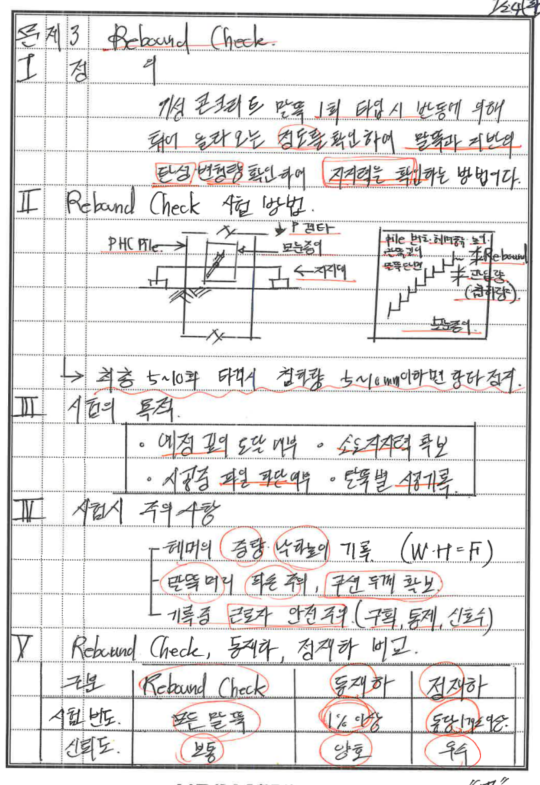 문제 3 Rebound Check.
I 정 의
기성 콘크리트 말뚝 1회 타입시 반동에 의해
튀어 올라오는 정도를 확인하여 말뚝과 지반의
탄성변형량 확인하여 지지력을 확인하는 방법이다.
II Rebound Check 시험 방법.
P 견타
PHC Pile
모눈종이
지지대
Pile 번호, 해머종류, 높이
말뚝길이
말뚝단면
Rebound
관입량
(침하량)
모눈종이
↳ 최종 5~10회 타격시 침하량 5~10mm이하면 항타 정지.
III 시험의 목적.
· 예정 깊이 도달 여부 · 소요지지력 확보
· 시공중 파일 파단여부 · 말뚝별 시공기록.
IV 시험시 주의사항
해머의 중량 낙하높이 기록. (W·H = F)
말뚝머리 파손 주의, 쿠션 두께 확보
기록중 근로자 안전주의 (구획, 통제, 신호수)
V Rebound Check, 동재하, 정재하 비교.
구분 Rebound Check 동재하 정재하
시험 빈도. 모든 말뚝 1% 이상
신뢰도. 보통 양호 우수
"끝"